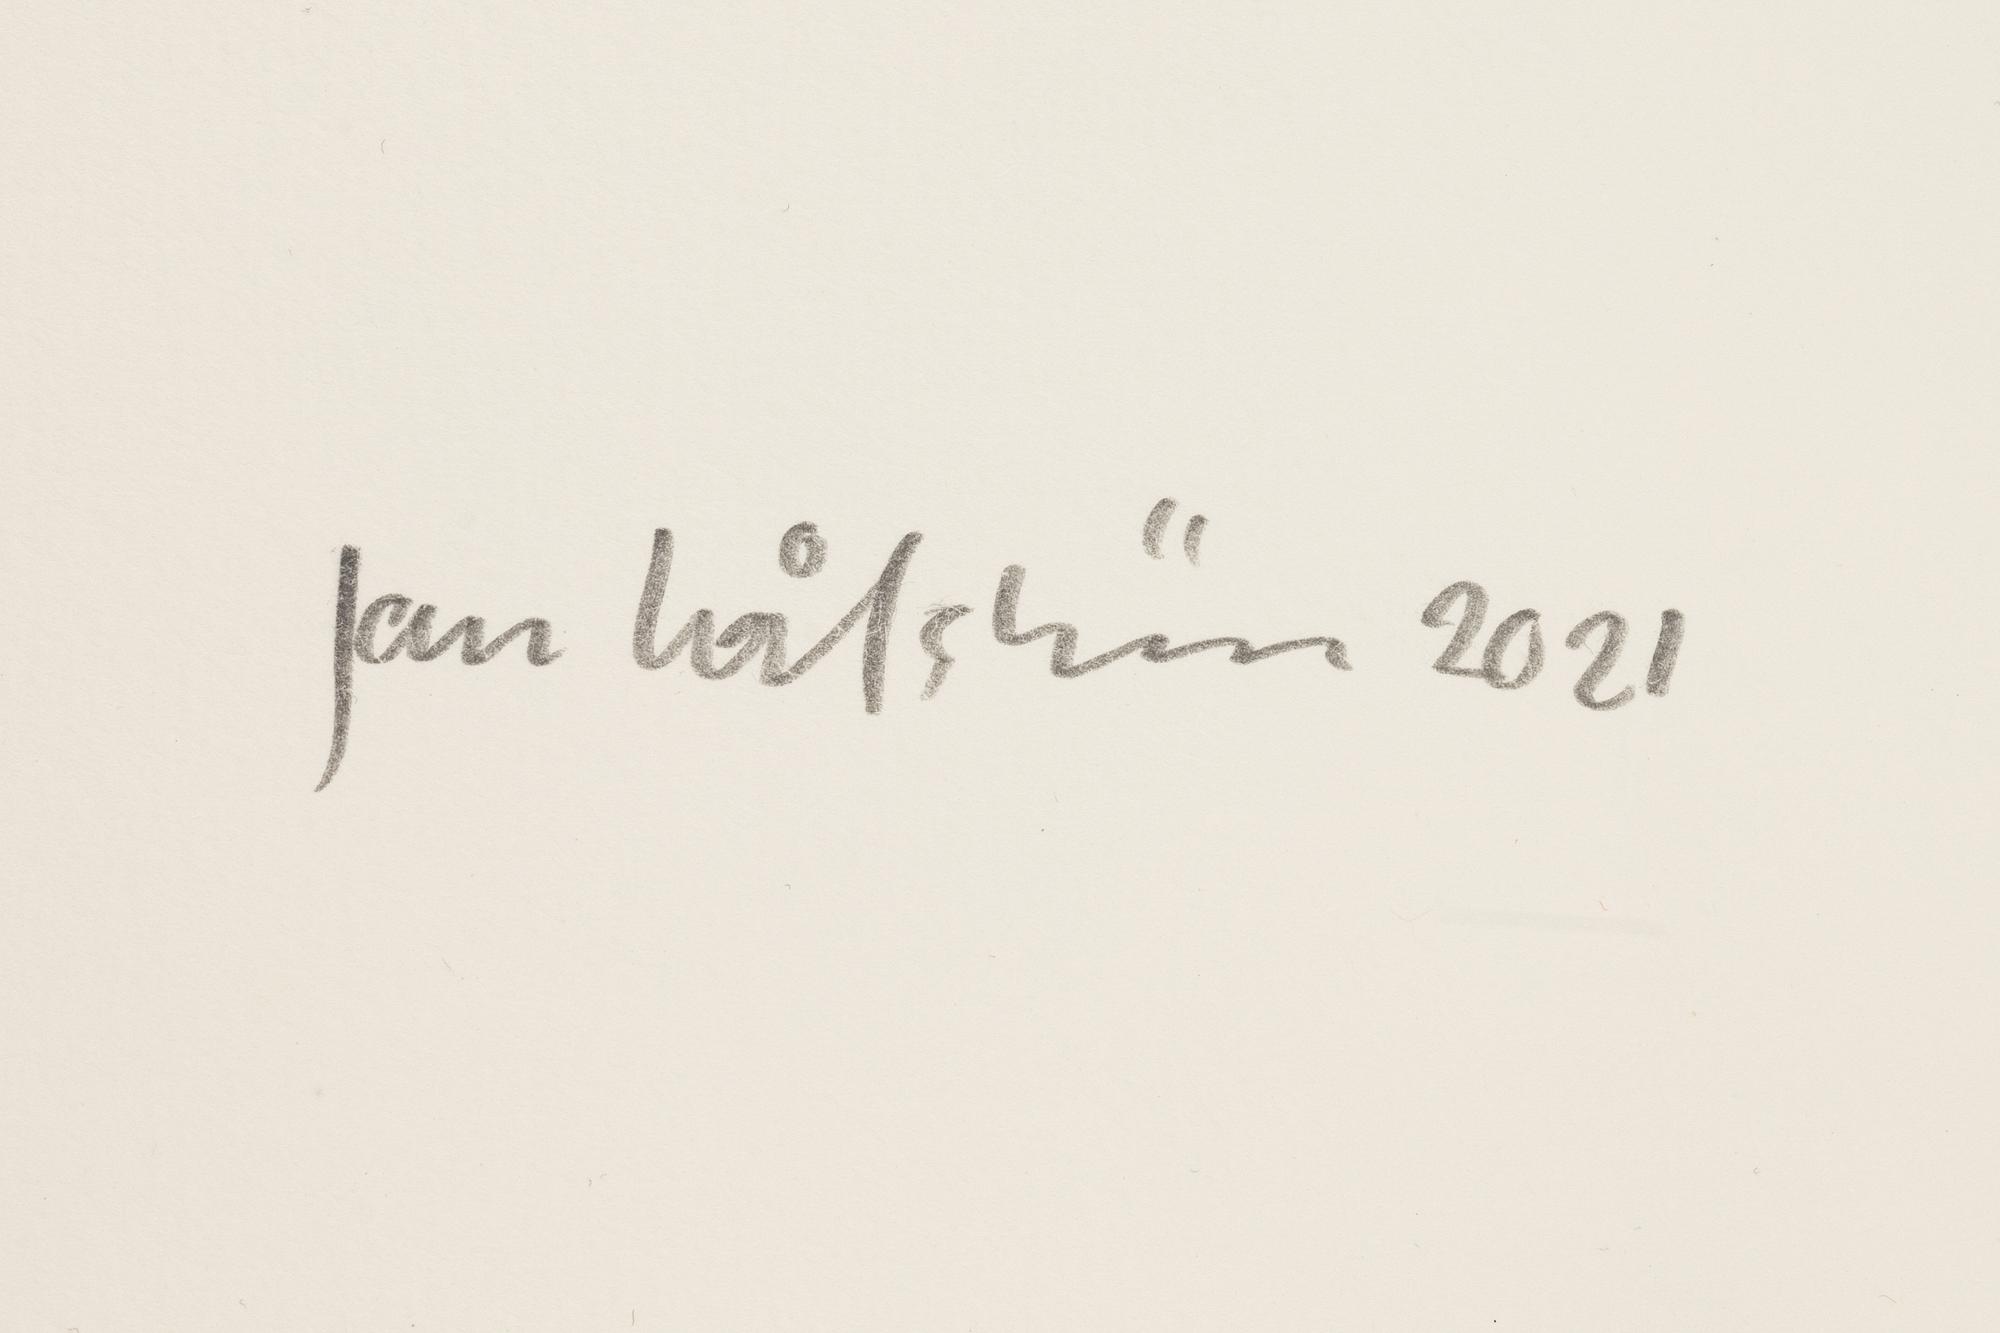 Jan håfström 2021